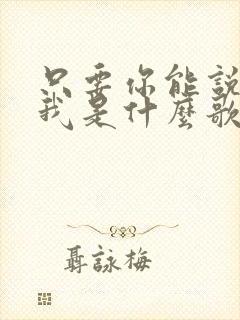 只要你能說
我是什麼歌
聶詠梅